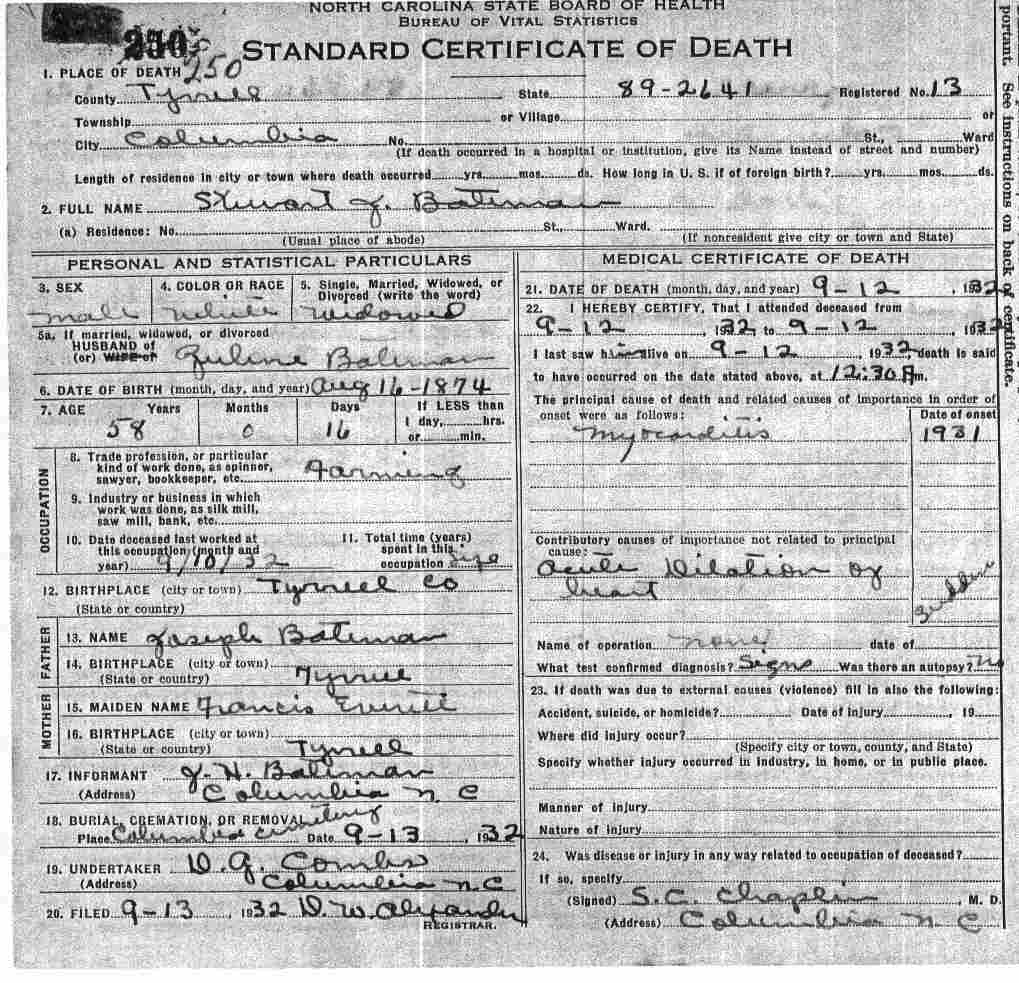 NORTH CAROLINA STATE BOARD OF HEALTH
BUREAU OF VITAL STATISTICS
STANDARD CERTIFICATE OF DEATH
1. PLACE OF DEATH 250
County Tyrrell State 89-2641 Registered No. 13
Township or Village or
City Columbia No. St., Ward
(If death occurred in a hospital or institution, give its Name instead of street and number)
Length of residence in city or town where death occurred yrs. mos. ds. How long in U. S. if of foreign birth? yrs. mos. ds.
2. FULL NAME Stewart J. Bateman
(a) Residence: No. St., Ward.
(Usual place of abode) (If nonresident give city or town and State)
PERSONAL AND STATISTICAL PARTICULARS
3. SEX 4. COLOR OR RACE 5. Single, Married, Widowed, or
Divorced (write the word)
male white widowed
5a. If married, widowed, or divorced
HUSBAND of
(or) WIFE of Zuline Bateman
6. DATE OF BIRTH (month, day, and year) Aug 16-1874
7. AGE Years Months Days If LESS than
1 day, hrs.
58 0 16 or min.
OCCUPATION
8. Trade profession, or particular
kind of work done, as spinner,
sawyer, bookkeeper, etc. Farming
9. Industry or business in which
work was done, as silk mill,
saw mill, bank, etc.
10. Date deceased last worked at
this occupation (month and
year) 9/10/32
11. Total time (years)
spent in this
occupation Life
12. BIRTHPLACE (city or town) Tyrrell Co
(State or country)
FATHER
13. NAME Joseph Bateman
14. BIRTHPLACE (city or town)
(State or country) Tyrrell
MOTHER
15. MAIDEN NAME Francis Everitt
16. BIRTHPLACE (city or town)
(State or country) Tyrrell
17. INFORMANT J. H. Bateman
(Address) Columbia N C
18. BURIAL, CREMATION, OR REMOVAL
Place Columbia Cemetery Date 9-13, 1932
19. UNDERTAKER D. G. Combs
(Address) Columbia N. C
20. FILED 9-13, 1932 D. W. Alexander
REGISTRAR.
MEDICAL CERTIFICATE OF DEATH
21. DATE OF DEATH (month, day, and year) 9-12, 1932
22. I HEREBY CERTIFY, That I attended deceased from
9-12 1932, to 9-12, 1932
I last saw him alive on 9-12, 1932 death is said
to have occurred on the date stated above, at 12:30 P.m.
The principal cause of death and related causes of importance in order of
onset were as follows: Date of onset
Myocarditis 1931
Contributory causes of importance not related to principal
cause:
Acute Dilation of
heart
Name of operation none date of
What test confirmed diagnosis? Signs Was there an autopsy? No
23. If death was due to external causes (violence) fill in also the following:
Accident, suicide, or homicide? Date of injury, 19
Where did injury occur?
(Specify city or town, county, and State)
Specify whether injury occurred in industry, in home, or in public place.
Manner of injury
Nature of injury
24. Was disease or injury in any way related to occupation of deceased?
If so, specify
(Signed) S. C. Chaplin, M. D.
(Address) Columbia N C
portant. See instructions on back of certificate.